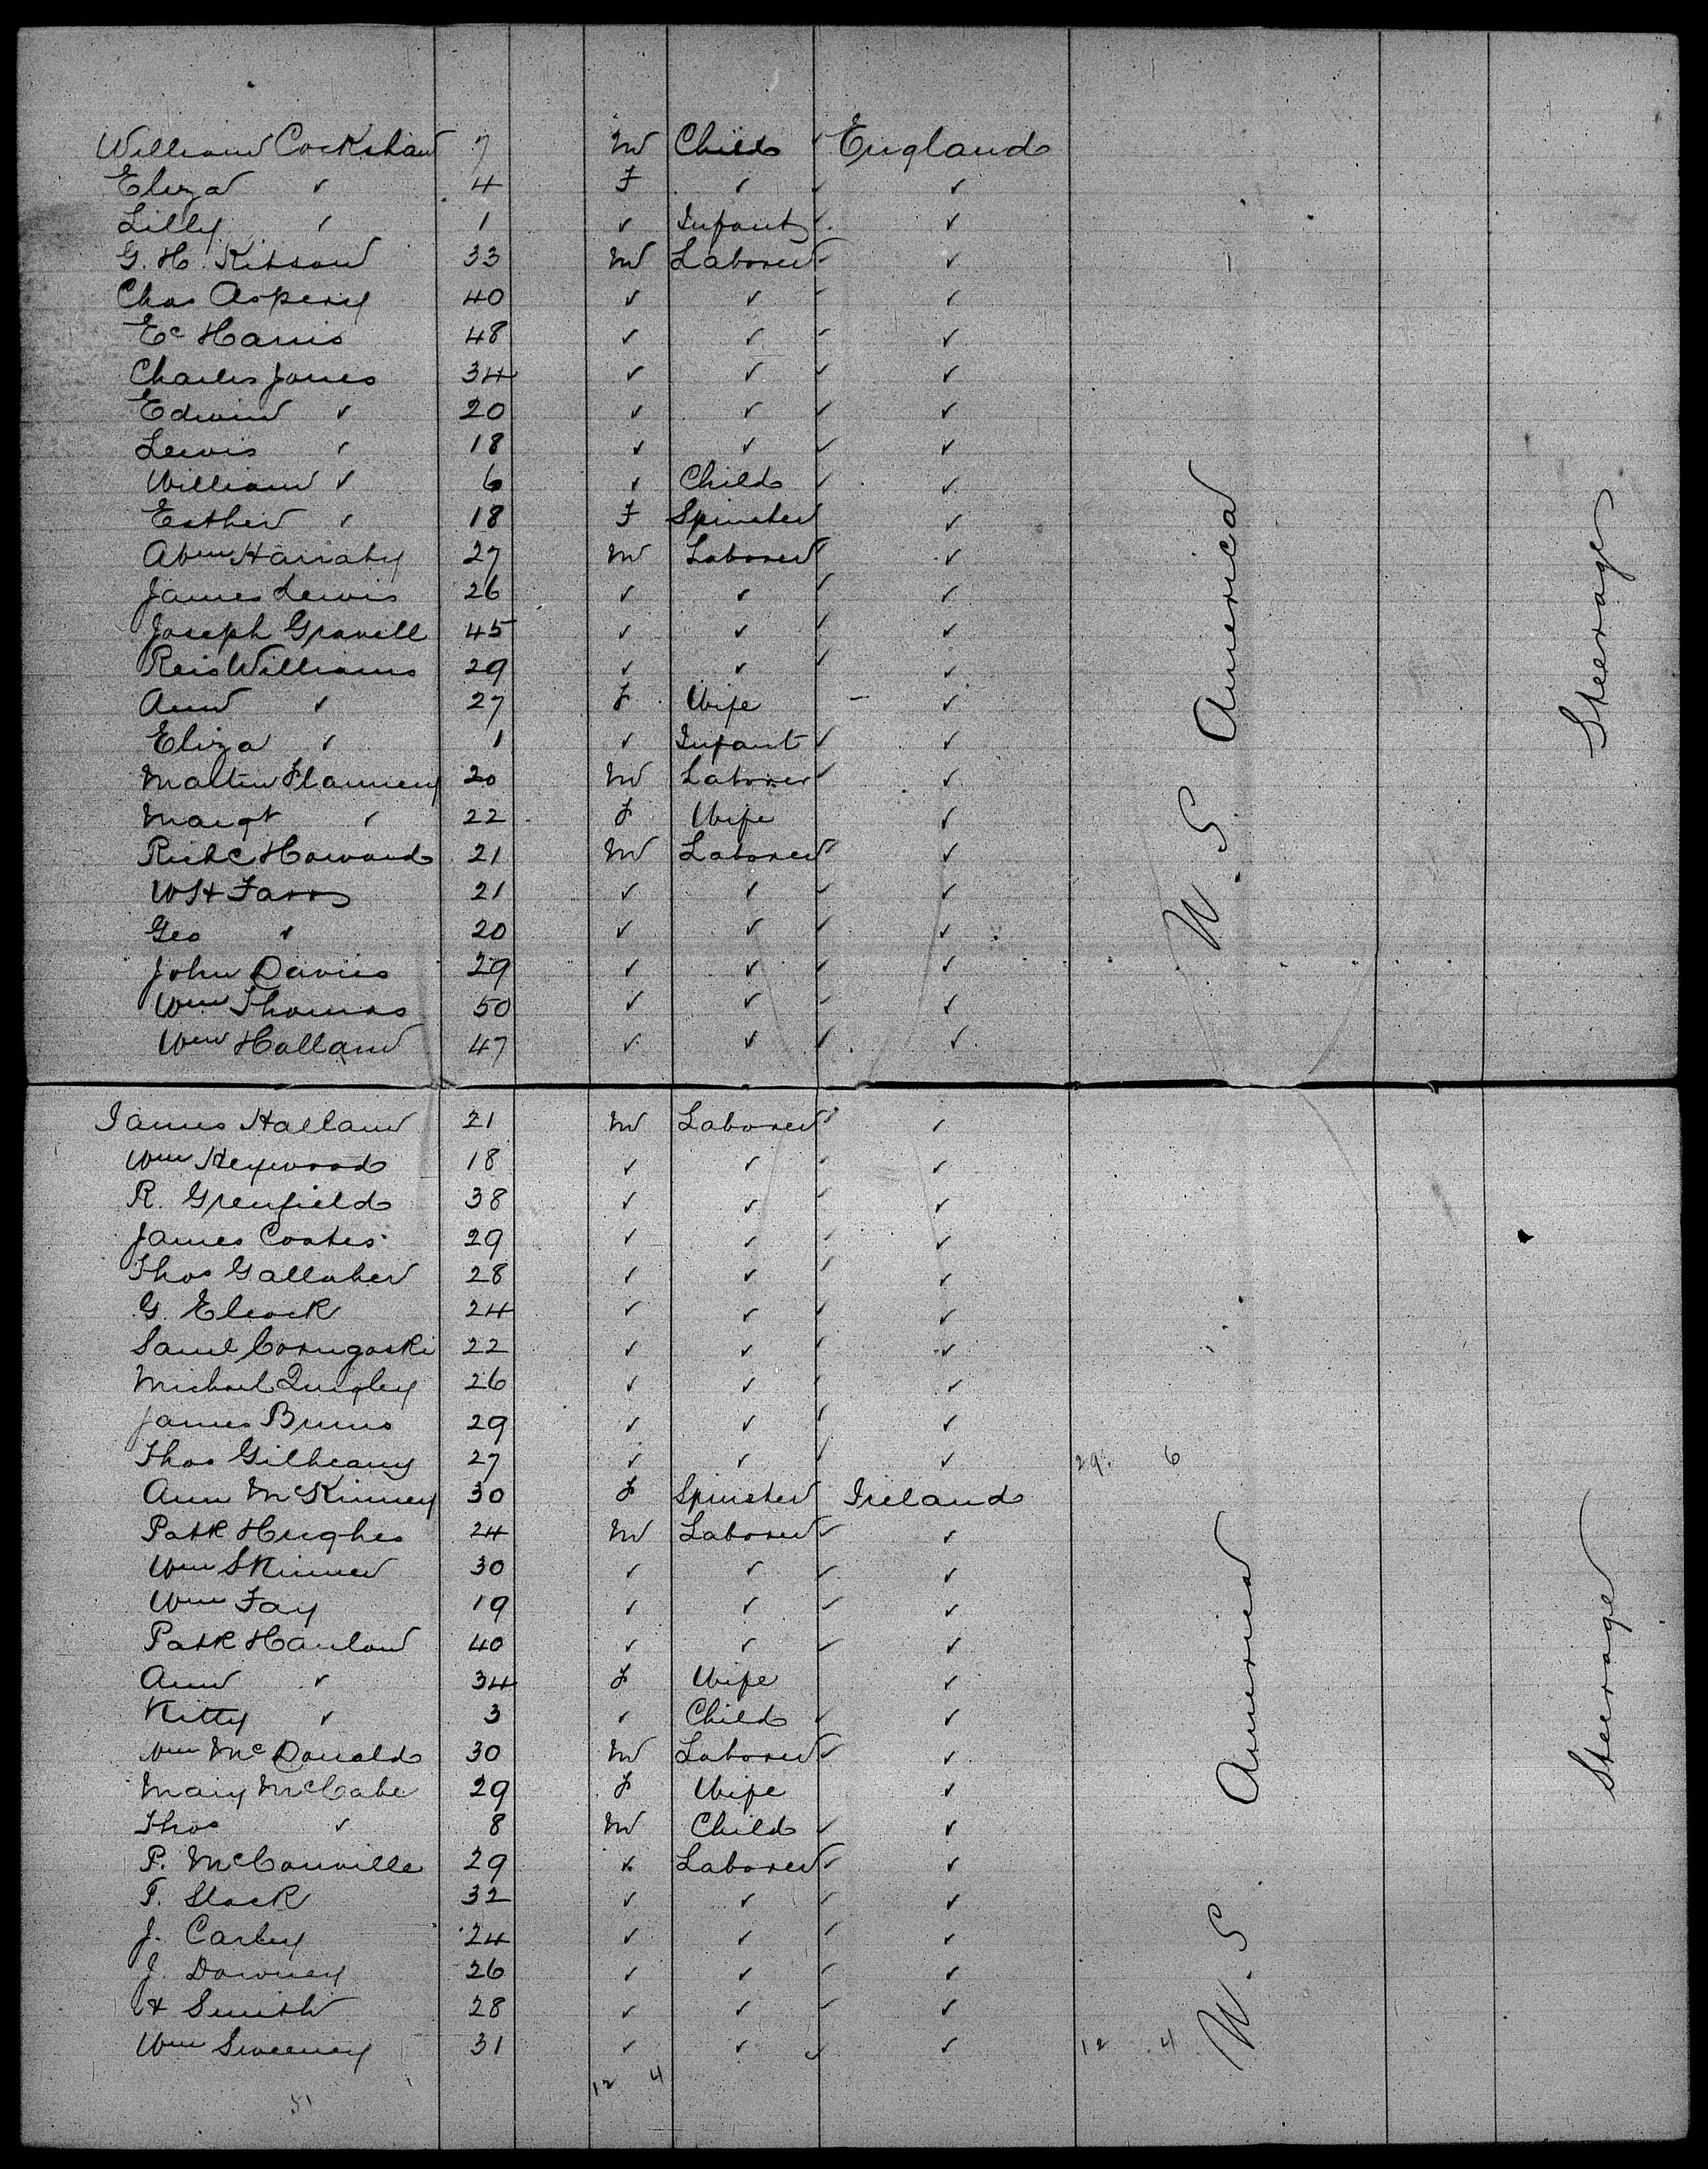 William Cockshaw 7 M Child ✓ England
Eliza ✓ 4 F ✓ ✓ ✓
Lilly ✓ 1 ✓ Infant ✓ ✓
G. H. Kitson 33 M Laborer ✓ ✓
Chas Aspery 40 ✓ ✓ ✓ ✓
Ec Harris 48 ✓ ✓ ✓ ✓
Charles Jones 34 ✓ ✓ ✓ ✓
Edwin ✓ 20 ✓ ✓ ✓ ✓
Lewis ✓ 18 ✓ ✓ ✓ ✓
William ✓ 6 ✓ Child ✓ ✓
Esther ✓ 18 F Spinster ✓
Abm Harraby 27 M Laborer ✓ ✓
James Lewis 26 ✓ ✓ ✓ ✓
Joseph Gravell 45 ✓ ✓ ✓ ✓
Reis Williams 29 ✓ ✓ ✓ ✓
Ann ✓ 27 F Wife - ✓
Eliza ✓ 1 ✓ Infant ✓ ✓
Flannery 20 M Laborer ✓ ✓
Margt ✓ 22 F Wife ✓
Richd Howard 21 M Laborer ✓ ✓
WH Farrs 21 ✓ ✓ ✓ ✓
Geo ✓ 20 ✓ ✓ ✓ ✓
John Davies 29 ✓ ✓ ✓ ✓
Wm Thomas 50 ✓ ✓ ✓ ✓
Wm Hallam 47 ✓ ✓ ✓ ✓
U. S America
Steerage
James Hallam 21 M Laborer ✓ ✓
Wm Heywood 18 ✓ ✓ ✓ ✓
R. Grenfield 38 ✓ ✓ ✓ ✓
James Coates 29 ✓ ✓ ✓ ✓
Thos Gallaher 28 ✓ ✓ ✓ ✓
G. Elcock 24 ✓ ✓ ✓ ✓
Saml Corngoski 22 ✓ ✓ ✓ ✓
Michael Quigley 26 ✓ ✓ ✓ ✓
James Burns 29 ✓ ✓ ✓ ✓
Thos Gilheany 27 ✓ ✓ ✓ ✓ 29 6
Ann McKinney 30 F Spinster Ireland
Patk Hughes 24 M Laborer ✓ ✓
Wm Skinner 30 ✓ ✓ ✓ ✓
Wm Fay 19 ✓ ✓ ✓ ✓
Patk Hanlon 40 ✓ ✓ ✓ ✓
Ann ✓ 34 F Wife ✓
Kitty ✓ 3 ✓ Child ✓ ✓
Wm McDonald 30 M Laborer ✓ ✓
Mary McCabe 29 F Wife ✓
Thos ✓ 8 M Child ✓ ✓
P. McConville 29 ✓ Laborer ✓ ✓
T. Slack 32 ✓ ✓ ✓ ✓
J. Carley 24 ✓ ✓ ✓ ✓
J. Downey 26 ✓ ✓ ✓ ✓
H Smith 28 ✓ ✓ ✓ ✓
Wm Sweeney 31 ✓ ✓ ✓ ✓ 12 4
12 4
51
U. S America
Steerage